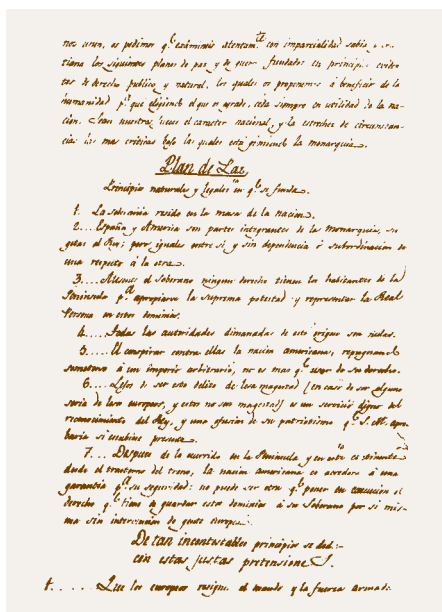 nos unen, os pedimos q.e exâmineis atentam.te con imparcialidad sabia
tiana los siguientes planes de paz y de guerra fundados en principios eviden
tes de derecho publico y natural, los quales os proponemos a beneficio de la
humanidad p.a que eligiendo el que os agrade, ceda siempre en utilidad de la na-
cion. Sean nuestros jueces el caracter nacional, y la estreches de circunstan-
cias las mas criticas bajo las quales está gimiendo la monarquia.
Plan de Paz,
Principios naturales y legales en q.e se funda.
1. La soberania reside en la masa de la nacion.
2... España y America son partes integrantes de la monarquia, su
getas al Rey; pero iguales entre sí, y sin dependencia ô subordinacion de
una respecto á la otra.
3.... Ausente el soberano ningun derecho tienen los habitantes de la
Peninsula p.a apropiarse la suprema potestad y representar la Real
Persona en estos dominios.
4..... Todas las autoridades dimanadas de este origen son nulas.
5..... El conspirar contra ellas la nacion americana, repugnando
someterse á un imperio arbitrario, no es mas q.e usar de su derecho.
6..... Lejos de ser esto delito de lesa magestad (en caso de ser alguno
seria de lesos europeos, y estos no son magestad) es un servicio digno del
reconocimiento del Rey, y una efusion de su patriotismo q.e S. M. apro
baria si estubiese presente.
7... Despues de lo ocurrido en la Peninsula y en este continente
desde el trastorno del trono, la nacion americana es acredora á una
garantia p.a su seguridad: no puede ser otra q.e poner en execucion el
derecho q.e tiene de guardar estos dominios á su Soberano por si mis-
ma sin intervencion de gente europea.
De tan incontestables principios se ded:-
cen estas justas pretensiones.
1...... Que los europeos resignen el mando y la fuerza armada